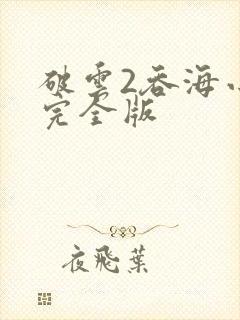 破雲2吞海
完全版
夜飛葉